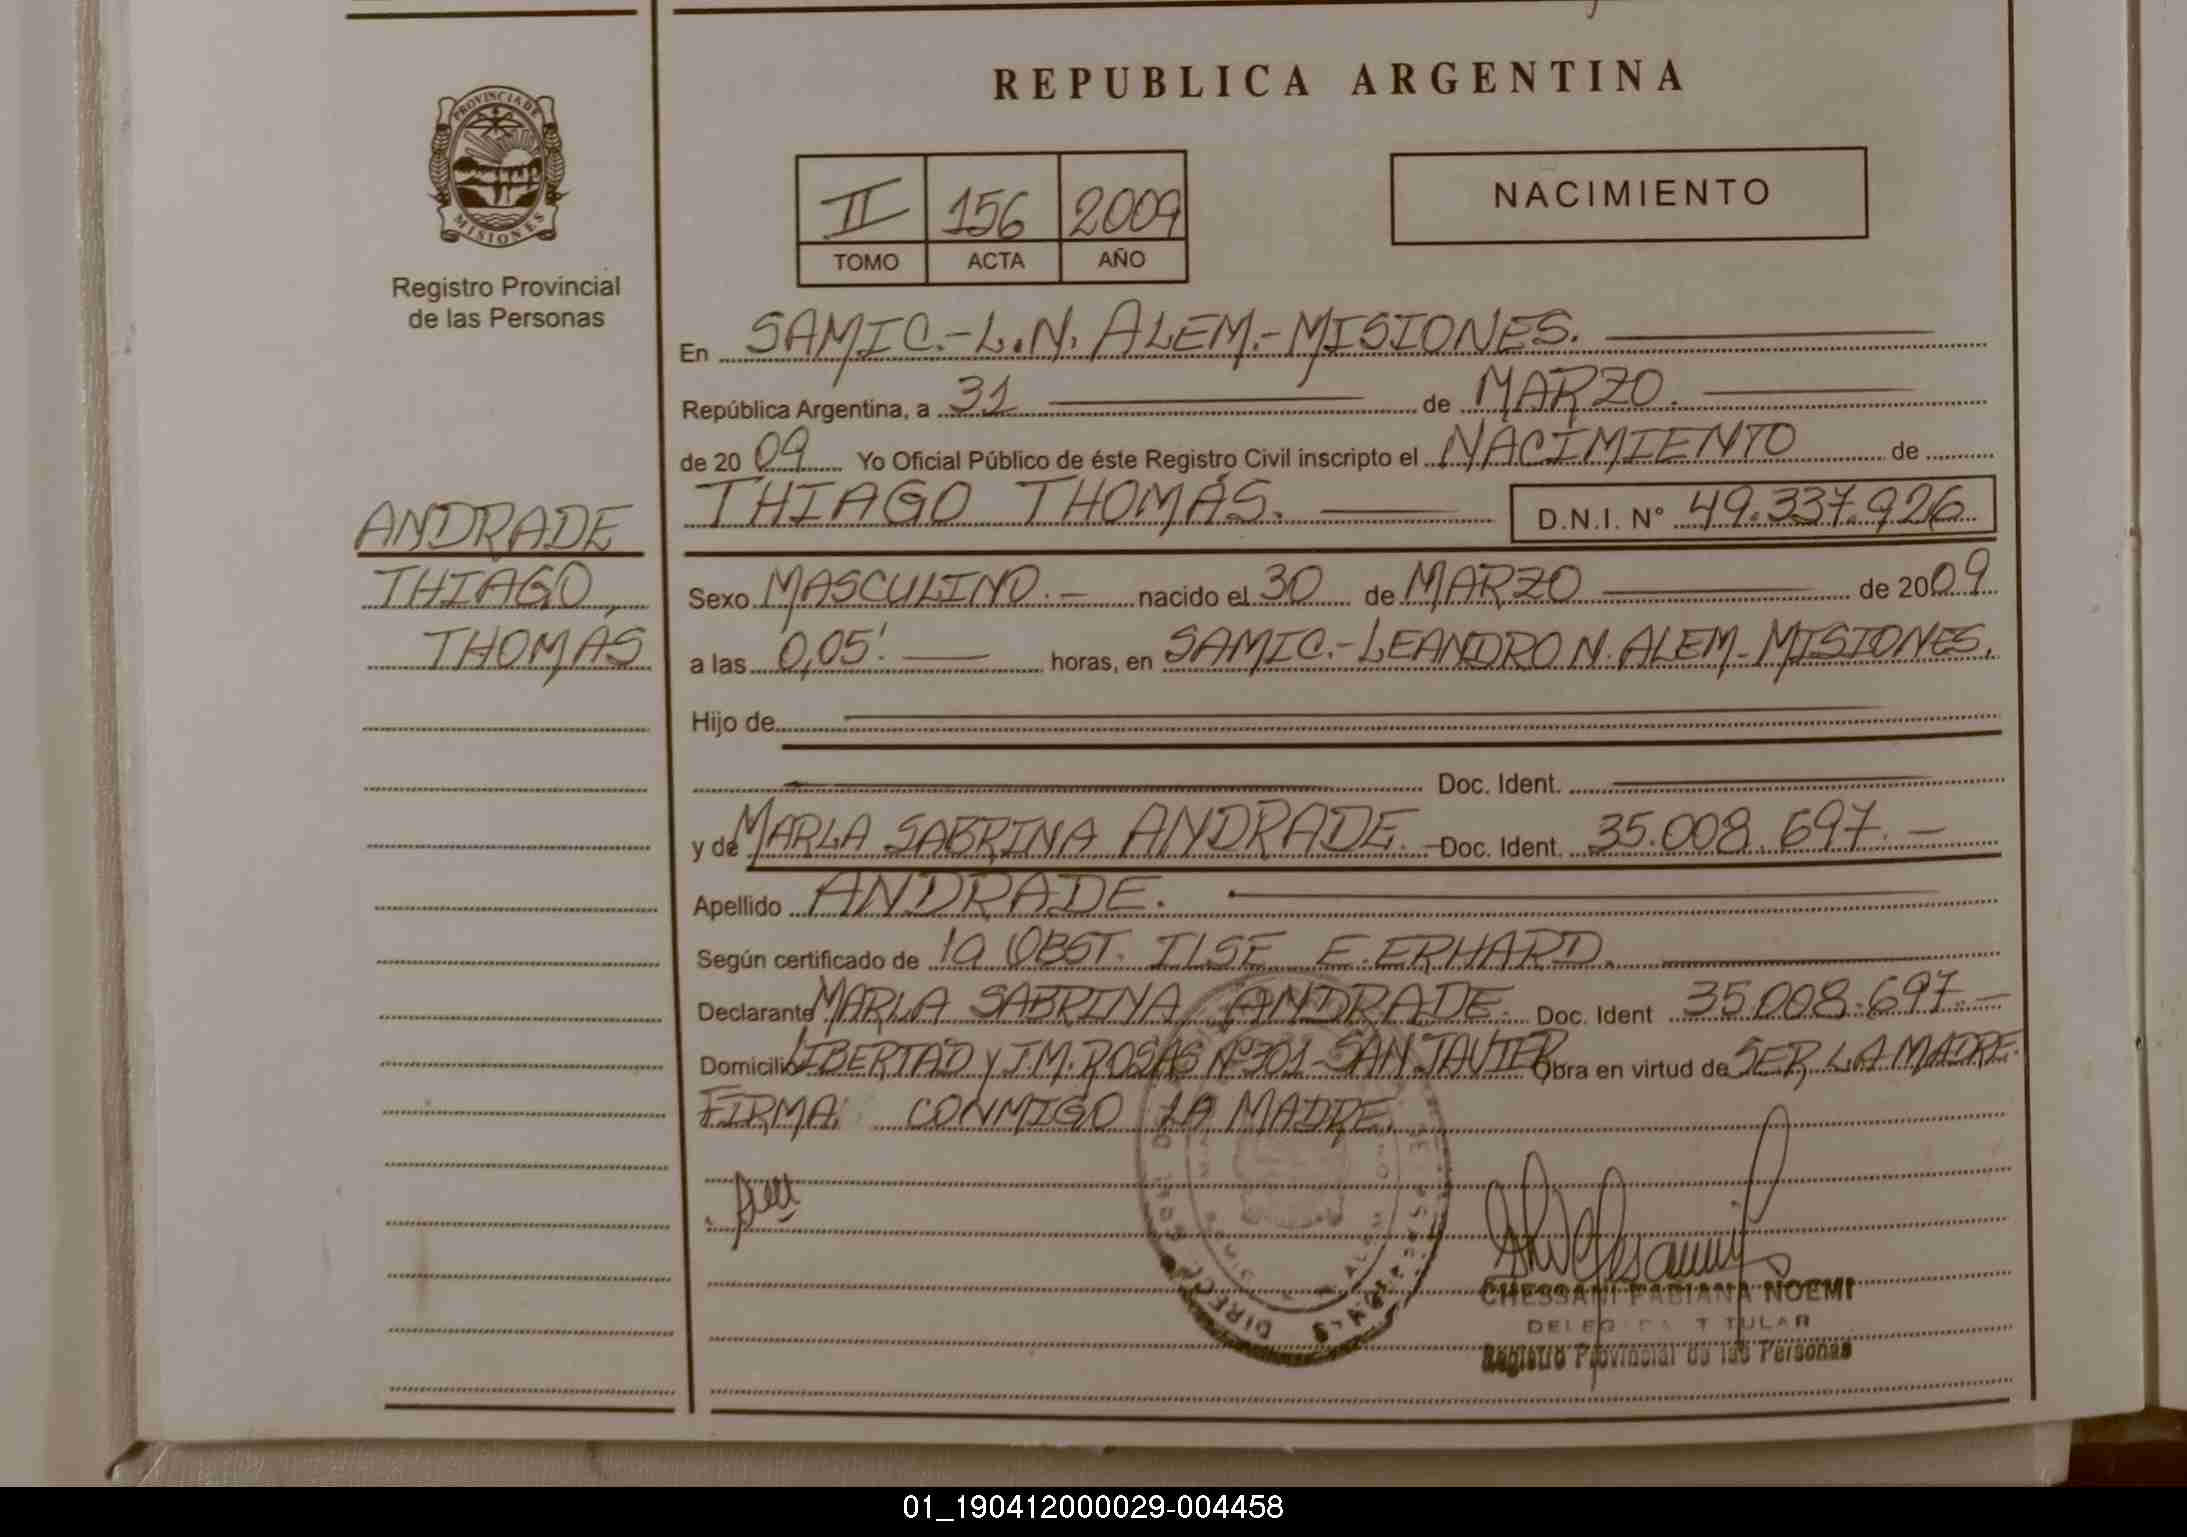 REPUBLICA ARGENTINA
PROVINCIA DE
MISIONES
Registro Provincial
de las Personas
II 156 2009
TOMO ACTA AÑO
NACIMIENTO
En SAMIC.-L.N. ALEM.-MISIONES.
República Argentina, a 31 de MARZO.
de 2009 Yo Oficial Público de éste Registro Civil inscripto el NACIMIENTO de
THIAGO THOMÁS. D.N.I. N° 49.337.926
ANDRADE
THIAGO,
THOMÁS
Sexo MASCULINO.- nacido el 30 de MARZO de 2009
a las 0,05'. horas, en SAMIC.-LEANDRO N. ALEM-MISIONES.
Hijo de
Doc. Ident.
y de MARLA SABRINA ANDRADE.- Doc. Ident. 35.008.697.-
Apellido ANDRADE.
Según certificado de la OBST. ILSE E. ERHARD.
Declarante MARLA SABRINA ANDRADE. Doc. Ident 35.008.697.-
Domicilio LIBERTAD Y J.M. ROSAS Nº301-SAN JAVIER Obra en virtud de SER LA MADRE.
FIRMA CONMIGO LA MADRE.
CHESSANI FABIANA NOEMI
TITULAR
Registro Provincial de las Personas
01_190412000029-004458